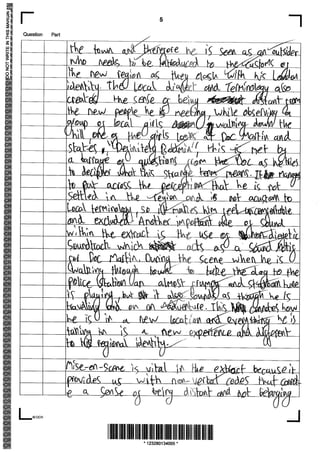 5
Question Part
DO NOT WRITE IN THIS MARGIN
the town and therefore he is seen as an outsider
who needs to be introduced to the customs of
the new region as they clash with his London
identity. The Local dialect and Terminology also
creates the sense of being distant from
the new people he is meeting, While observing a
group of local girls walking down the
hill one of the girls looks at Doc Martin and
states, "Definitely Rodein!" this is met by
a barrage of questions from the Doc as he tries
to decipher what this strange term means. It manages
to put across the perception that he is not
settled in the region and is not accustom to
Local terminology so it makes him feel uncomfortable
and excluded. Another important use of sound
within the extract is the use of non-diegetic
Soundtrack which acts as a Sound
for Doc Martin. During the scene when he is
walking through town to take the dog to the
police station an almost and Story tune
is playing, but it also sounds as though he is
travelling and on an adventure. This how
he is in a new location and everything he is
taking in is a new experience and different
to his regional identity.
Mise-en-Scene is vital in the extract because it
provides us with non-verbal codes that
e a sense of being distant and not belonging
*123280134005*